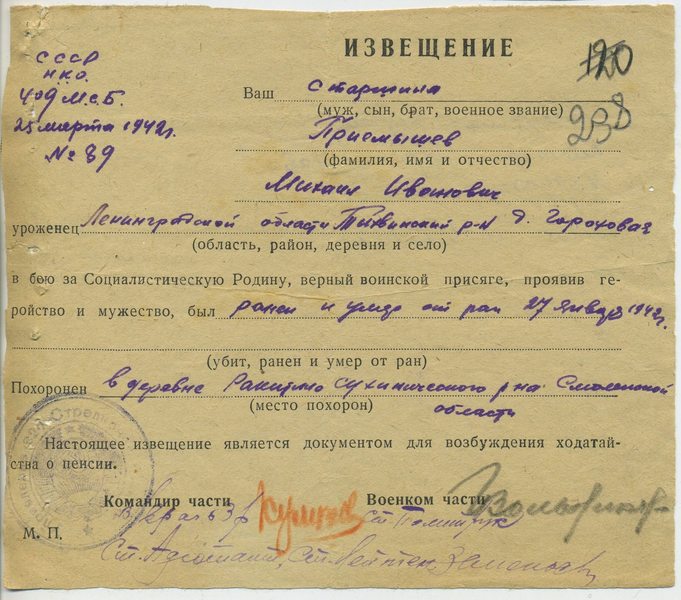 ИЗВЕЩЕНИЕ
СССР
Н.К.О.
409 М.С.Б.
25 марта 1942 г.
№ 89
120
238
Ваш старшина
(муж, сын, брат, военное звание)
Приемышев
(фамилия, имя и отчество)
Михаил Иванович
уроженец Ленинградской области Тихвинский р-н д. Гороховая
(область, район, деревня и село)
в бою за Социалистическую Родину, верный воинской присяге, проявив ге-
ройство и мужество, был ранен и умер от ран 27 января 1942 г.
(убит, ранен и умер от ран)
Похоронен в деревне Сухинического р-на Смоленской
(место похорон) области
Настоящее извещение является документом для возбуждения ходатай-
ства о пенсии.
Командир части Военком части
М. П.
Ст. Политрук
Ст. Лейтен.